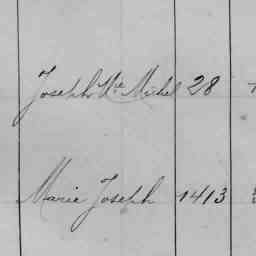 Joseph Ste Michel 28
Marie Joseph 1413